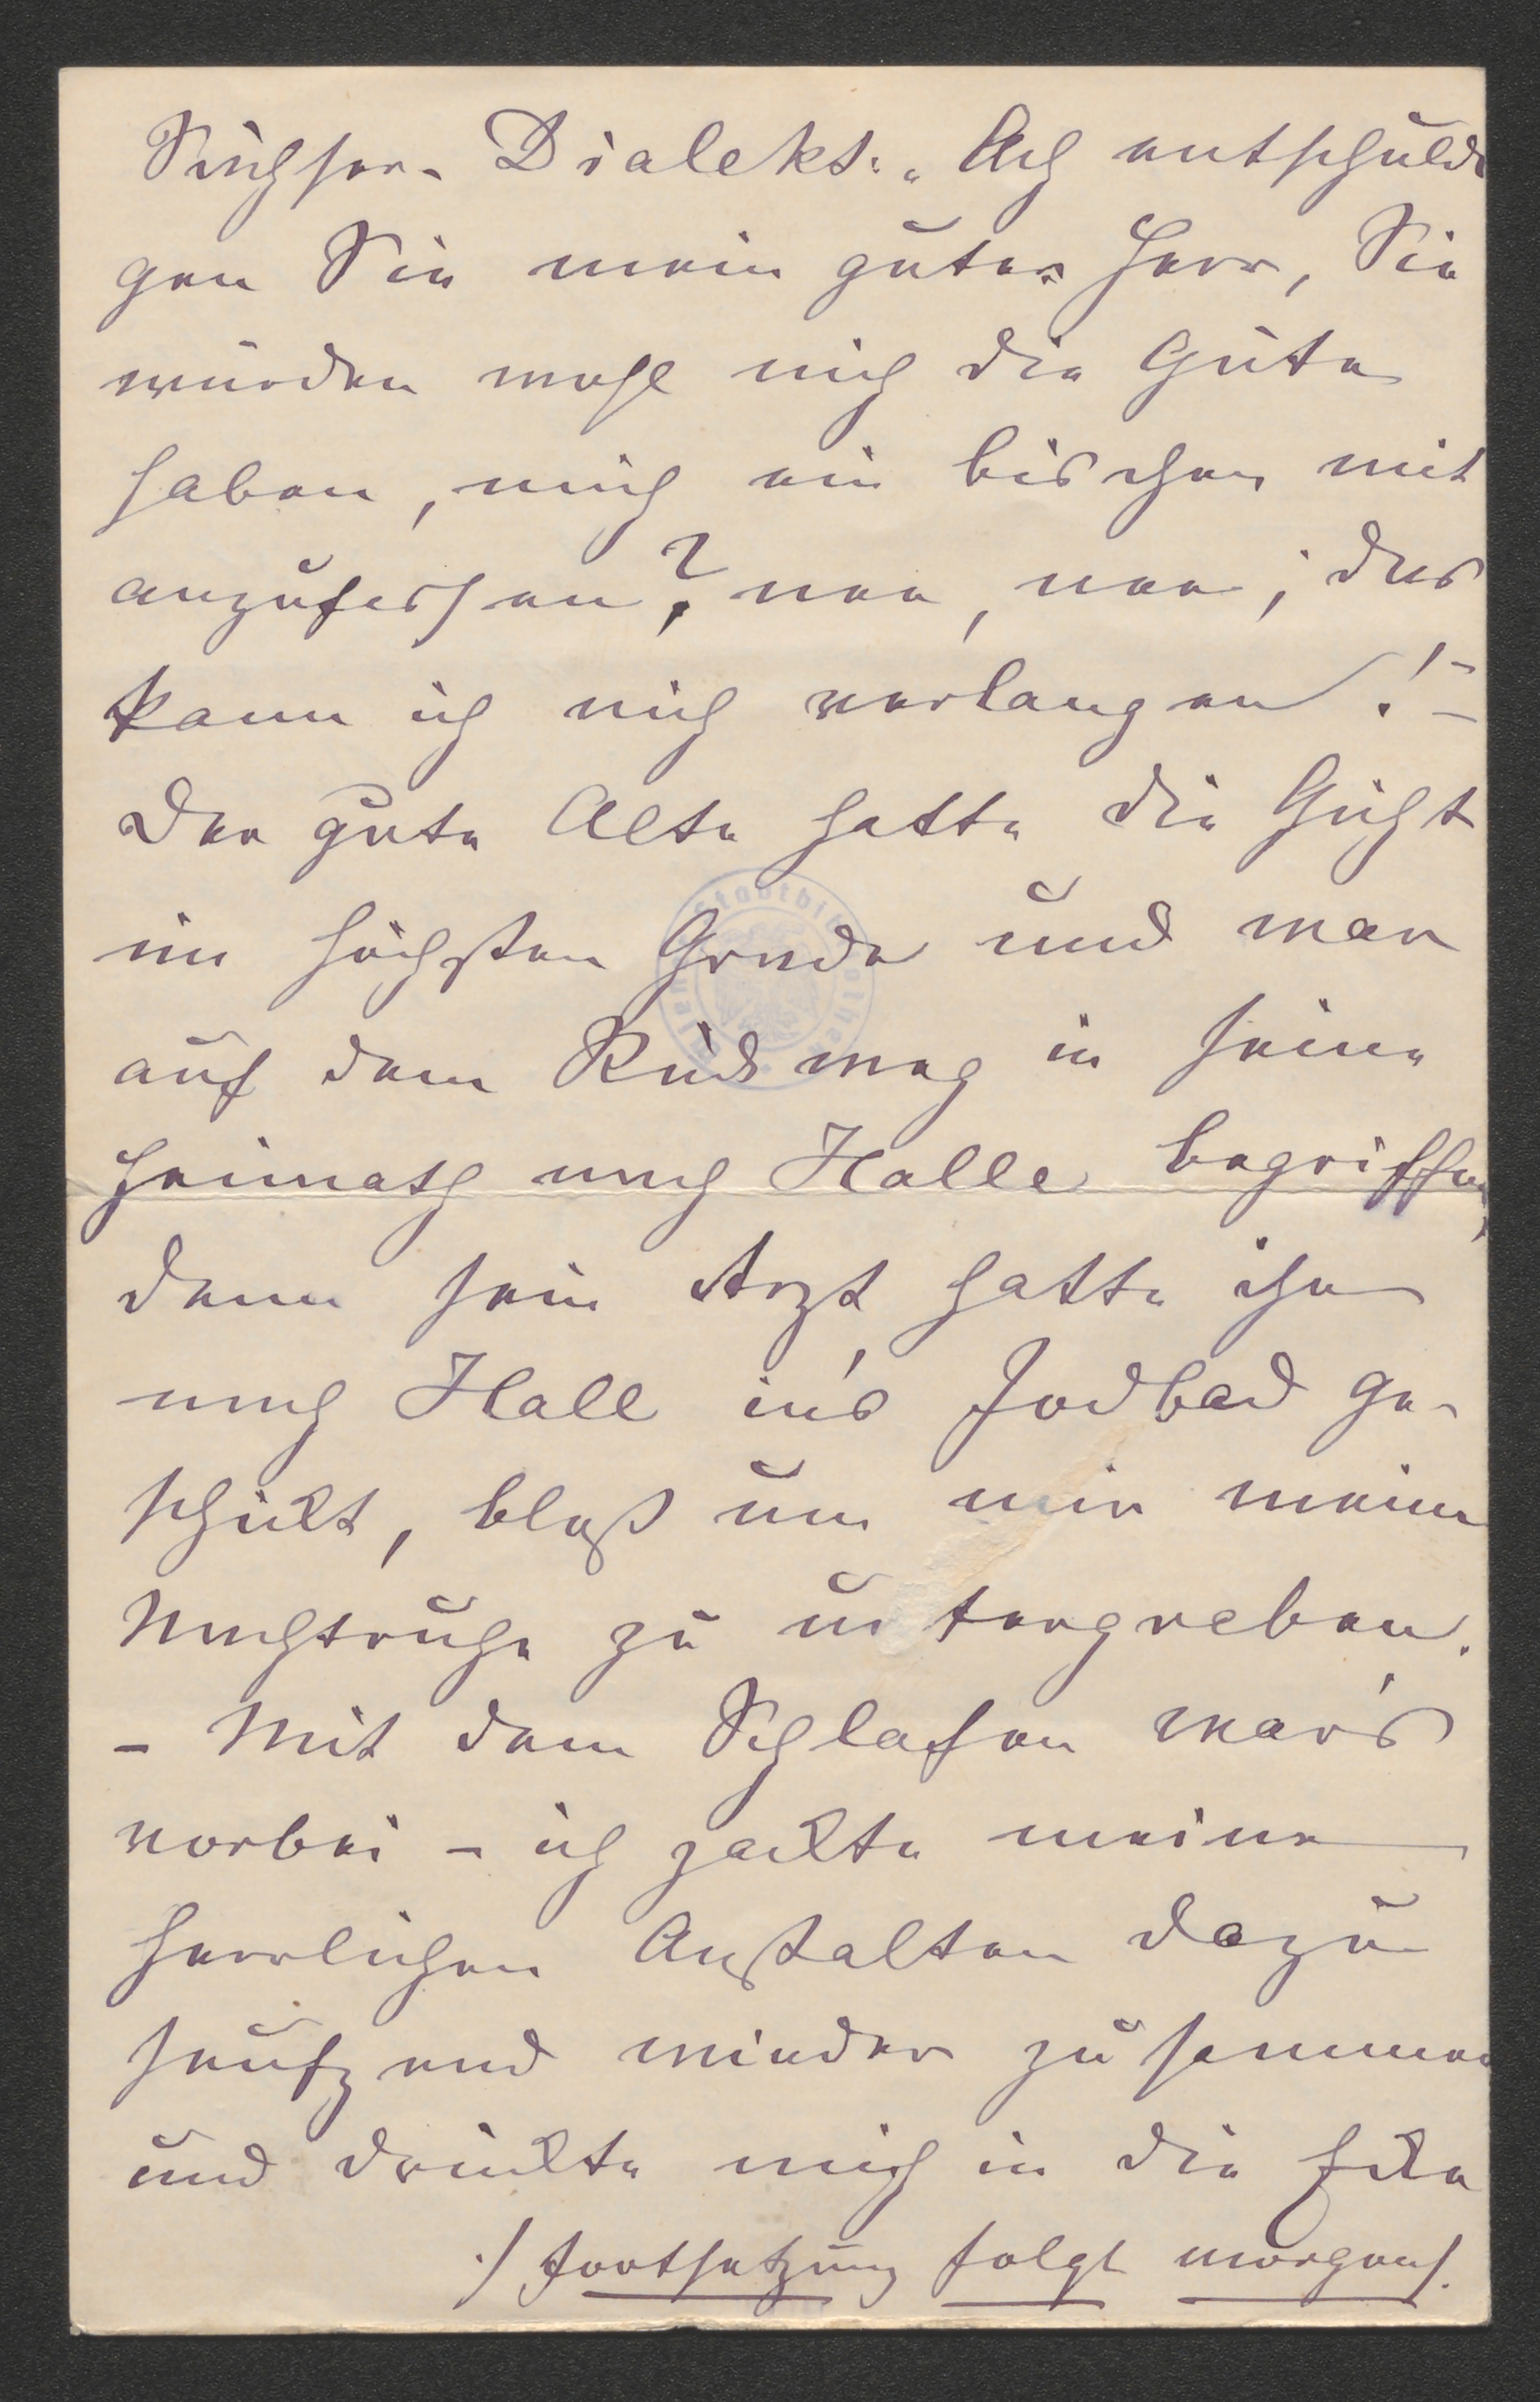 Sachsen-Dialekt: „Ach entschuldi
gen Sie mein guter Herr, Sie
würden wohl nich die Güte
haben, mich ein bischen mit
anzufassen? nee, nee, das
kann ich nich verlangen!–
Der gute Alte hatte die Gicht
im höchsten Grade und war
auf dem Rückweg in seine
Heimath nach Halle begriffen,
denn sein Arzt hatte ihn
nach Hall in's Jodbad ge-
schickt, bloß um mir meine
Nachtruhe zu untergraben.
– Mit dem Schlafen war's
vorbei – ich packte meine
herrlichen Anstalten dazu
seufzend wieder zusammen
und drückte mich in die Ecke
./ Fortsetzung folgt morgen/.
Stadtbibliothek
Wien